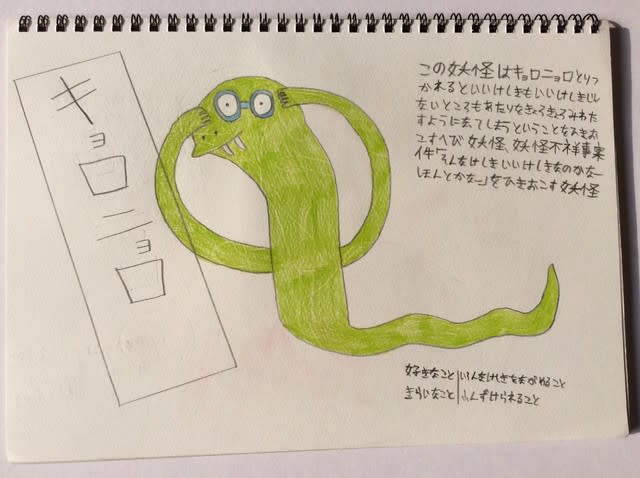 キョロニョロ
この妖怪はキョロニョロとりつ
かれるといいけしきもいいけしきじゃ
ないところもあたりをきょろきょろみわた
すようになってしまうということをおきお
こすへび妖怪、妖怪不祥事案
件「そんなけしきいいけしきなのかなー
ほんとかなー」をひきおこす妖怪
好きなこと いろんなけしきをながめること
きらいなこと ふんずけられること